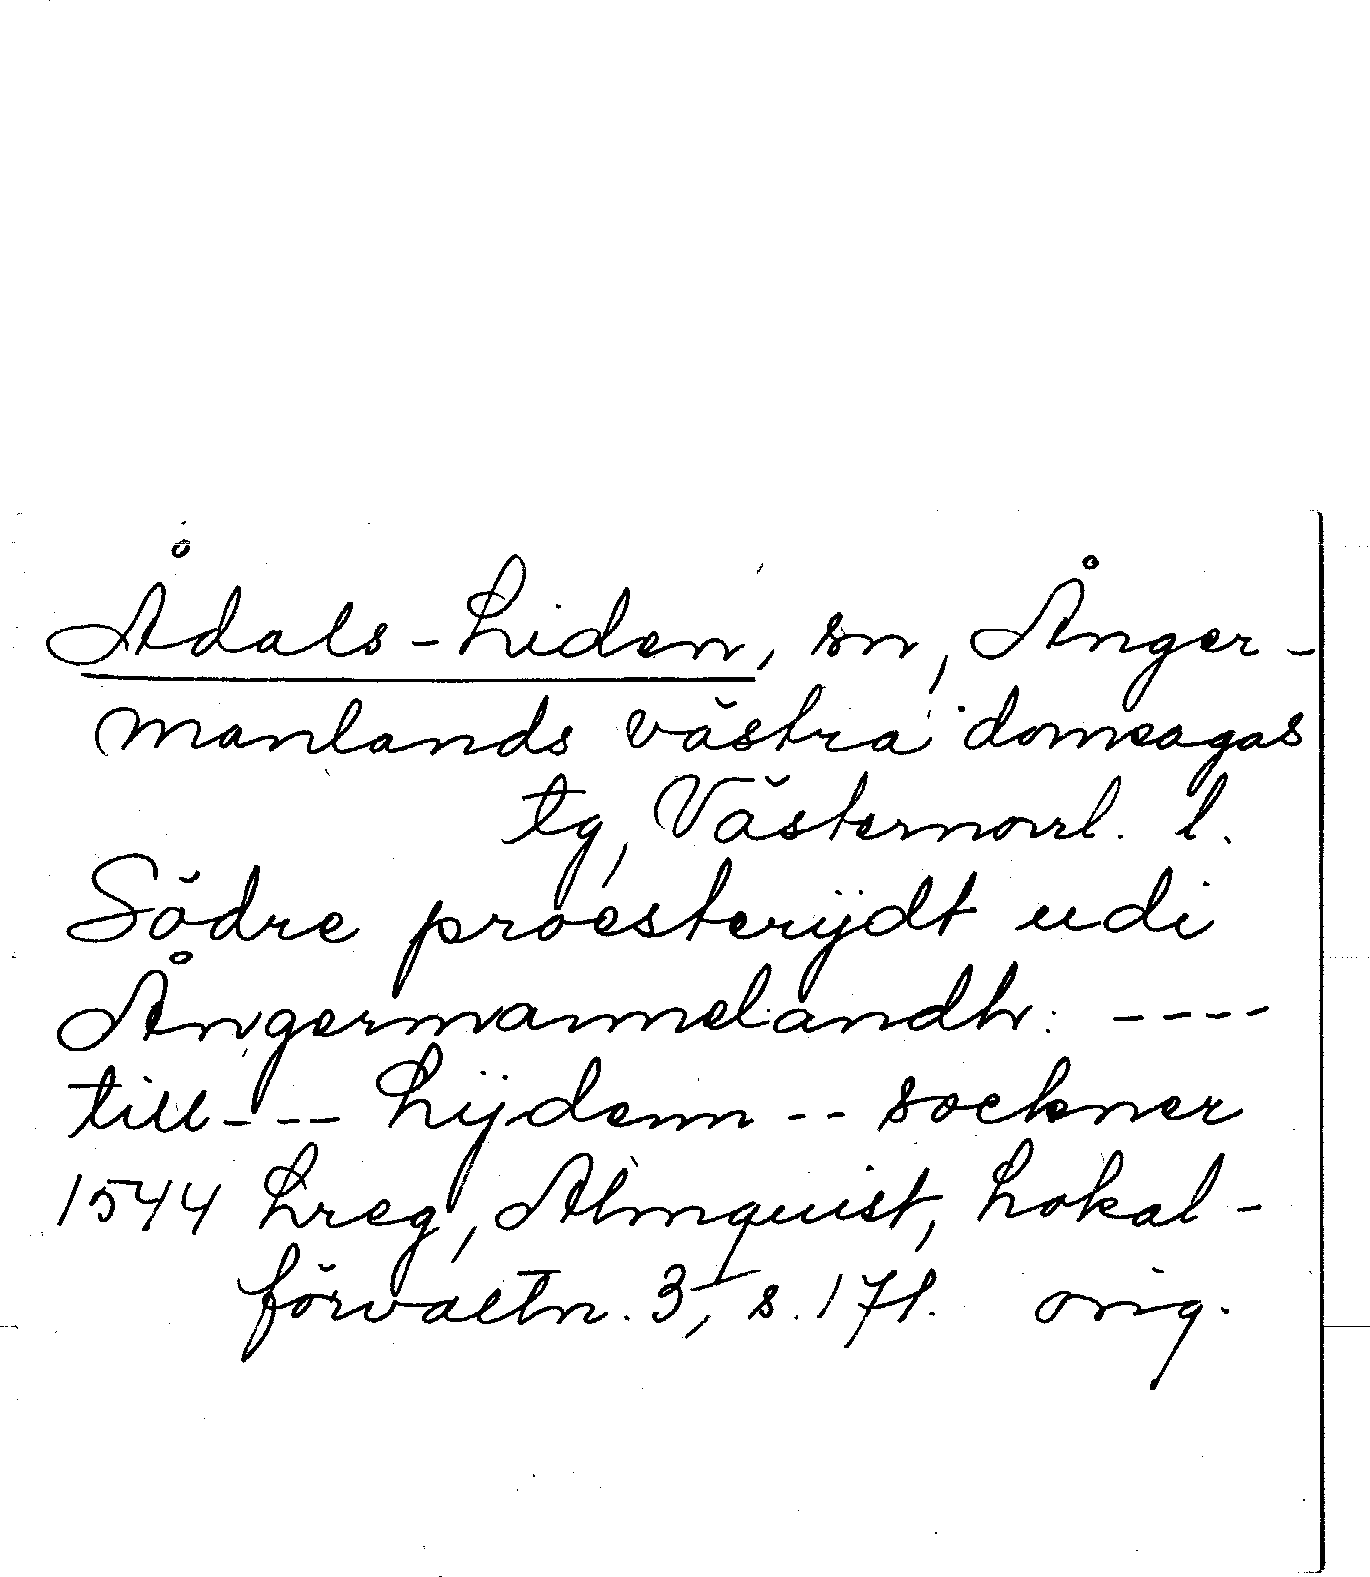 Ådals-Liden, sn, Ånger-
manlands västra domsagas
tg, Västernorrl. l.
Södre proesterijdt udi
Ångermannelandh: ----
till--- Lijdenn -- sockner
1544 Lreg, Almquist, Lokal-
förvaltn. 3, s. 171. orig.